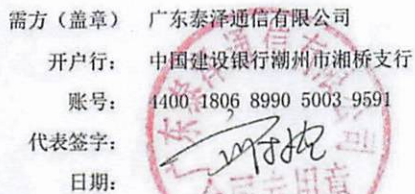 需方（盖章） 广东泰泽通信有限公司
开户行： 中国建设银行潮州市湘桥支行
账号： 4400 1806 8990 5003 9591
代表签字：
日期：
广东泰泽通信有限公司